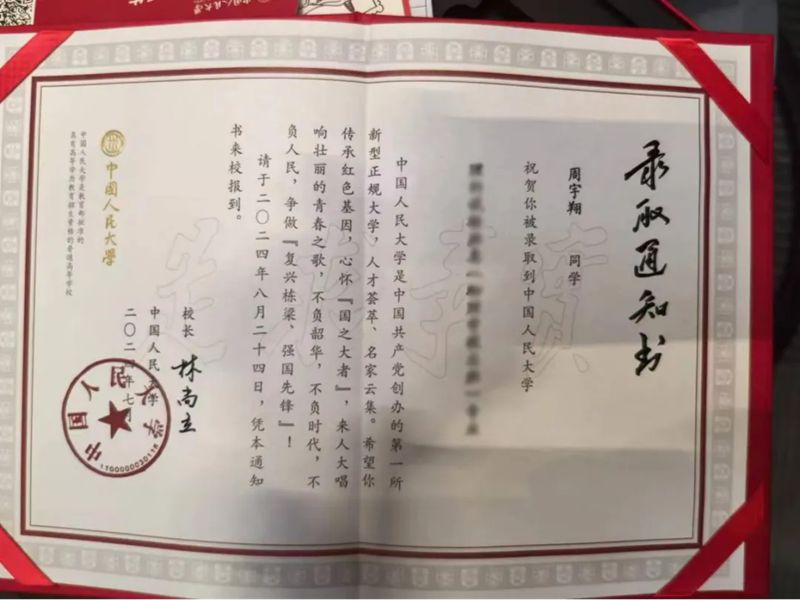 录取通知书
周宇翔 同学
祝贺你被录取到中国人民大学
中国人民大学是中国共产党创办的第一所
新型正规大学，人才荟萃、名家云集。希望你
传承红色基因，心怀『国之大者』，来人大唱
响壮丽的青春之歌，不负韶华，不负时代，不
负人民，争做『复兴栋梁、强国先锋』！
请于二〇二四年八月二十四日，凭本通知
书来校报到。
校长 林尚立
中国人民大学
二〇二四年七月
中国人民大学
中國人民大學
中国人民大学是教育部批准的
具有高等学历教育招生资格的普通高等学校
实事求是